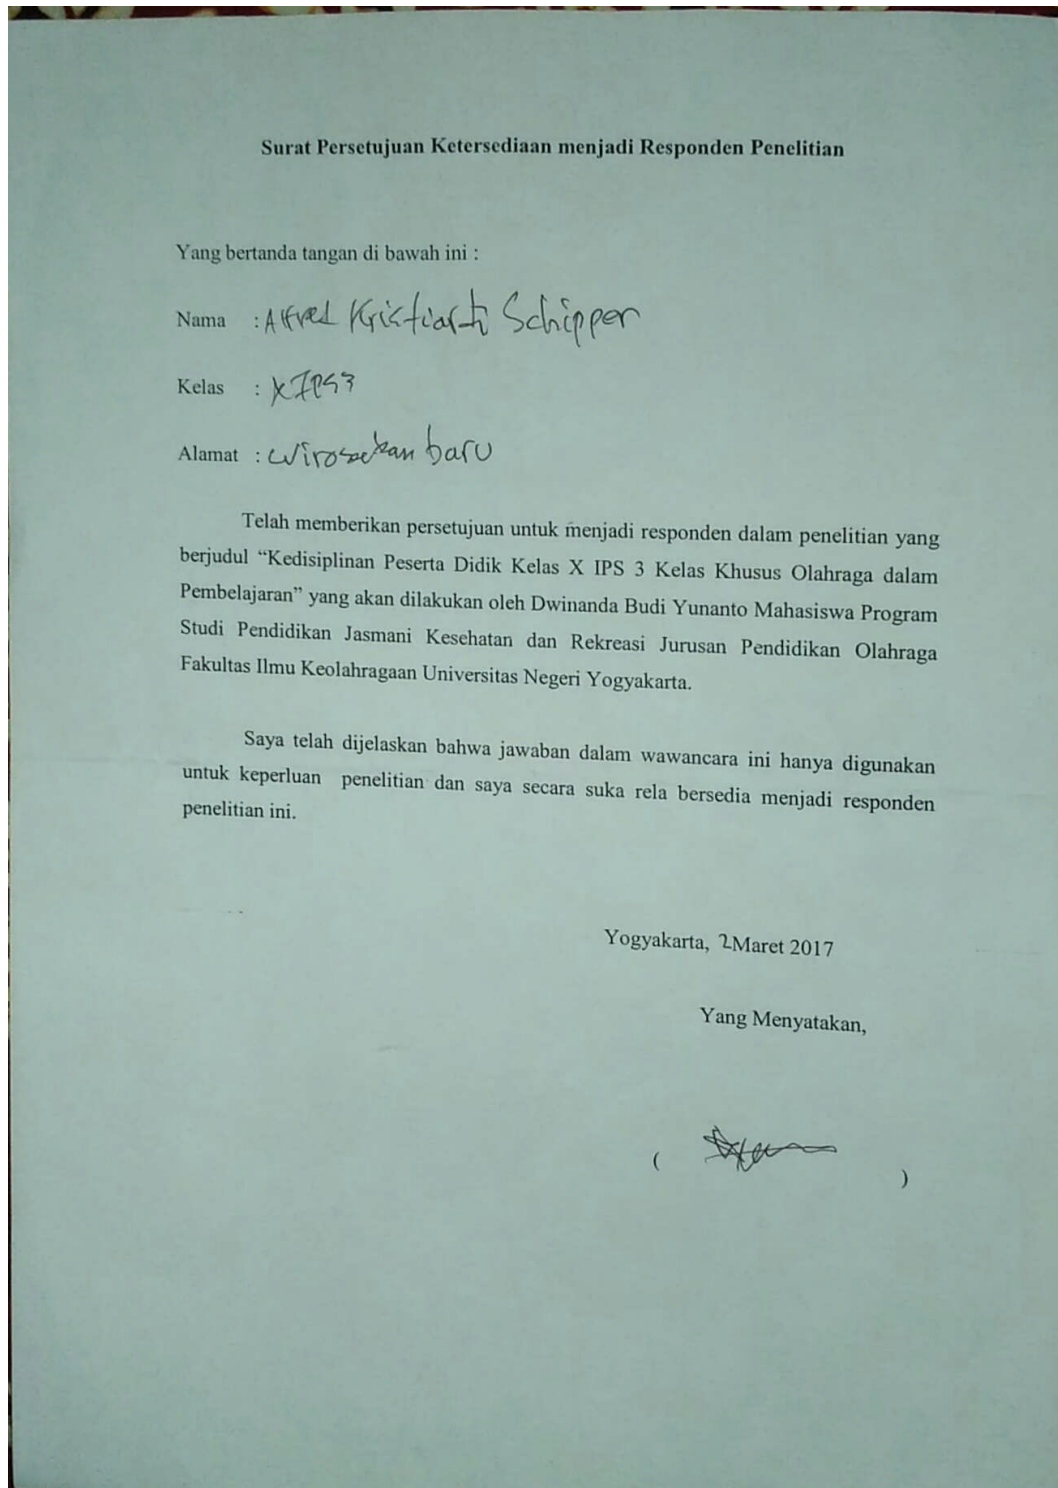 Surat Persetujuan Ketersediaan menjadi Responden Penelitian
Yang bertanda tangan di bawah ini :
Nama : Alfred Schipper
Kelas : X IPS 3
Alamat : baru
Telah memberikan persetujuan untuk menjadi responden dalam penelitian yang
berjudul “Kedisiplinan Peserta Didik Kelas X IPS 3 Kelas Khusus Olahraga dalam
Pembelajaran” yang akan dilakukan oleh Dwinanda Budi Yunanto Mahasiswa Program
Studi Pendidikan Jasmani Kesehatan dan Rekreasi Jurusan Pendidikan Olahraga
Fakultas Ilmu Keolahragaan Universitas Negeri Yogyakarta.
Saya telah dijelaskan bahwa jawaban dalam wawancara ini hanya digunakan
untuk keperluan penelitian dan saya secara suka rela bersedia menjadi responden
penelitian ini.
Yogyakarta, 2 Maret 2017
Yang Menyatakan,
( )